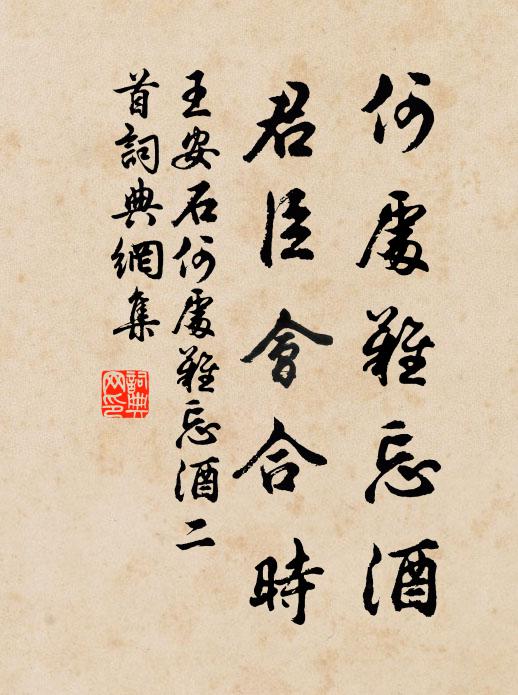 何處難忘酒
君臣會合時
王安石何處難忘酒二
首詞典網集
詞典
网印